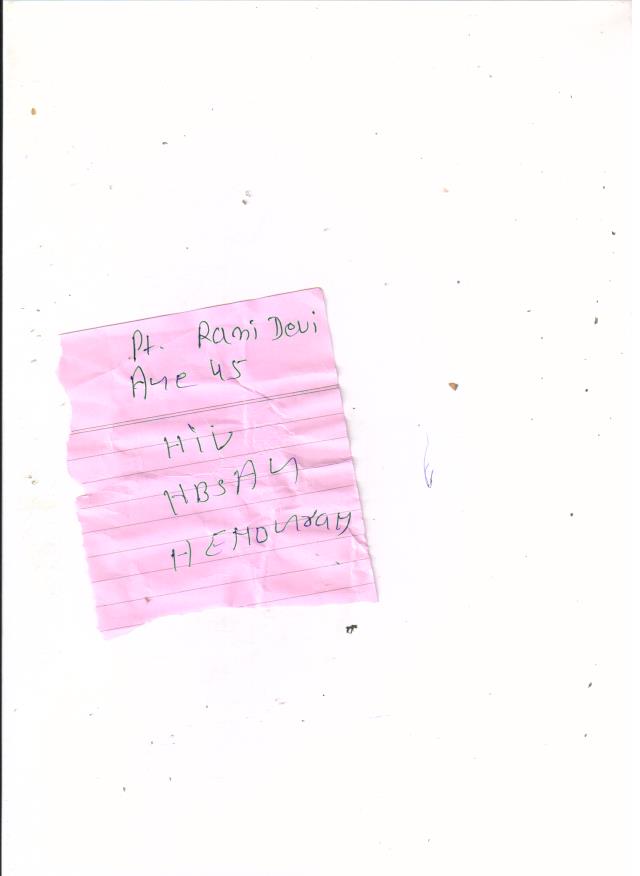 Pt. Rani Devi
Age 45
HIV
HBSAg
HEMOgram